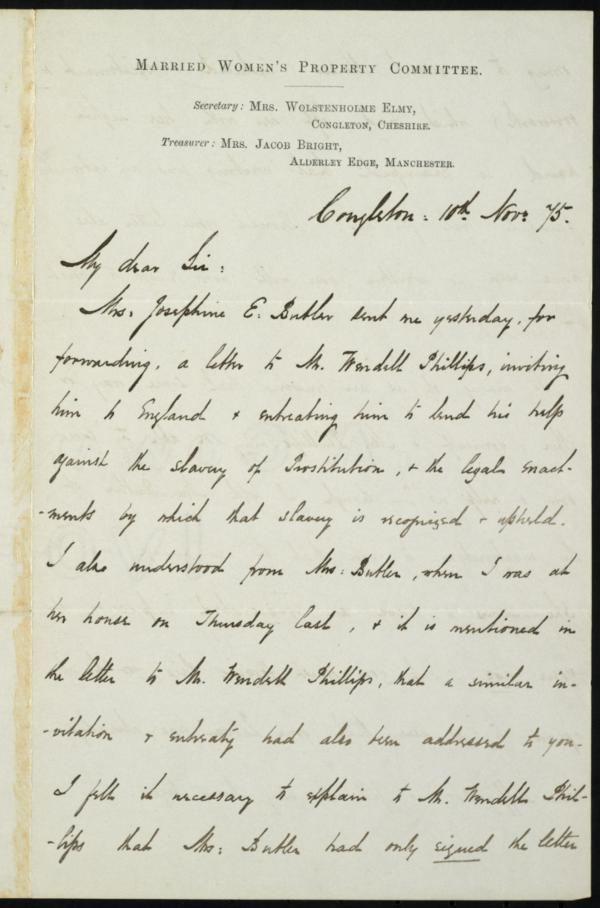 MARRIED WOMEN'S PROPERTY COMMITTEE.
Secretary: MRS. WOLSTENHOLME ELMY,
CONGLETON, CHESHIRE.
Treasurer: MRS. JACOB BRIGHT,
ALDERLEY EDGE, MANCHESTER.
Congleton: 10th Novr 75.
My dear Sir:
Mrs. Josephine E. Butler sent me yesterday, for
forwarding, a letter to Mr. Wendell Phillips, inviting
him to England & entreating him to lend his help
against the slavery of Prostitution, & the legal enact-
-ments by which that slavery is recognized & upheld.
I also understood from Mrs: Butler, when I was at
her house on Thursday last, & it is mentioned in
the letter to Mr. Wendell Phillips, that a similar in-
-vitation & entreaty had also been addressed to you.
I felt it necessary to explain to Mr. Wendell Phil-
-lips that Mrs: Butler had only signed the letter